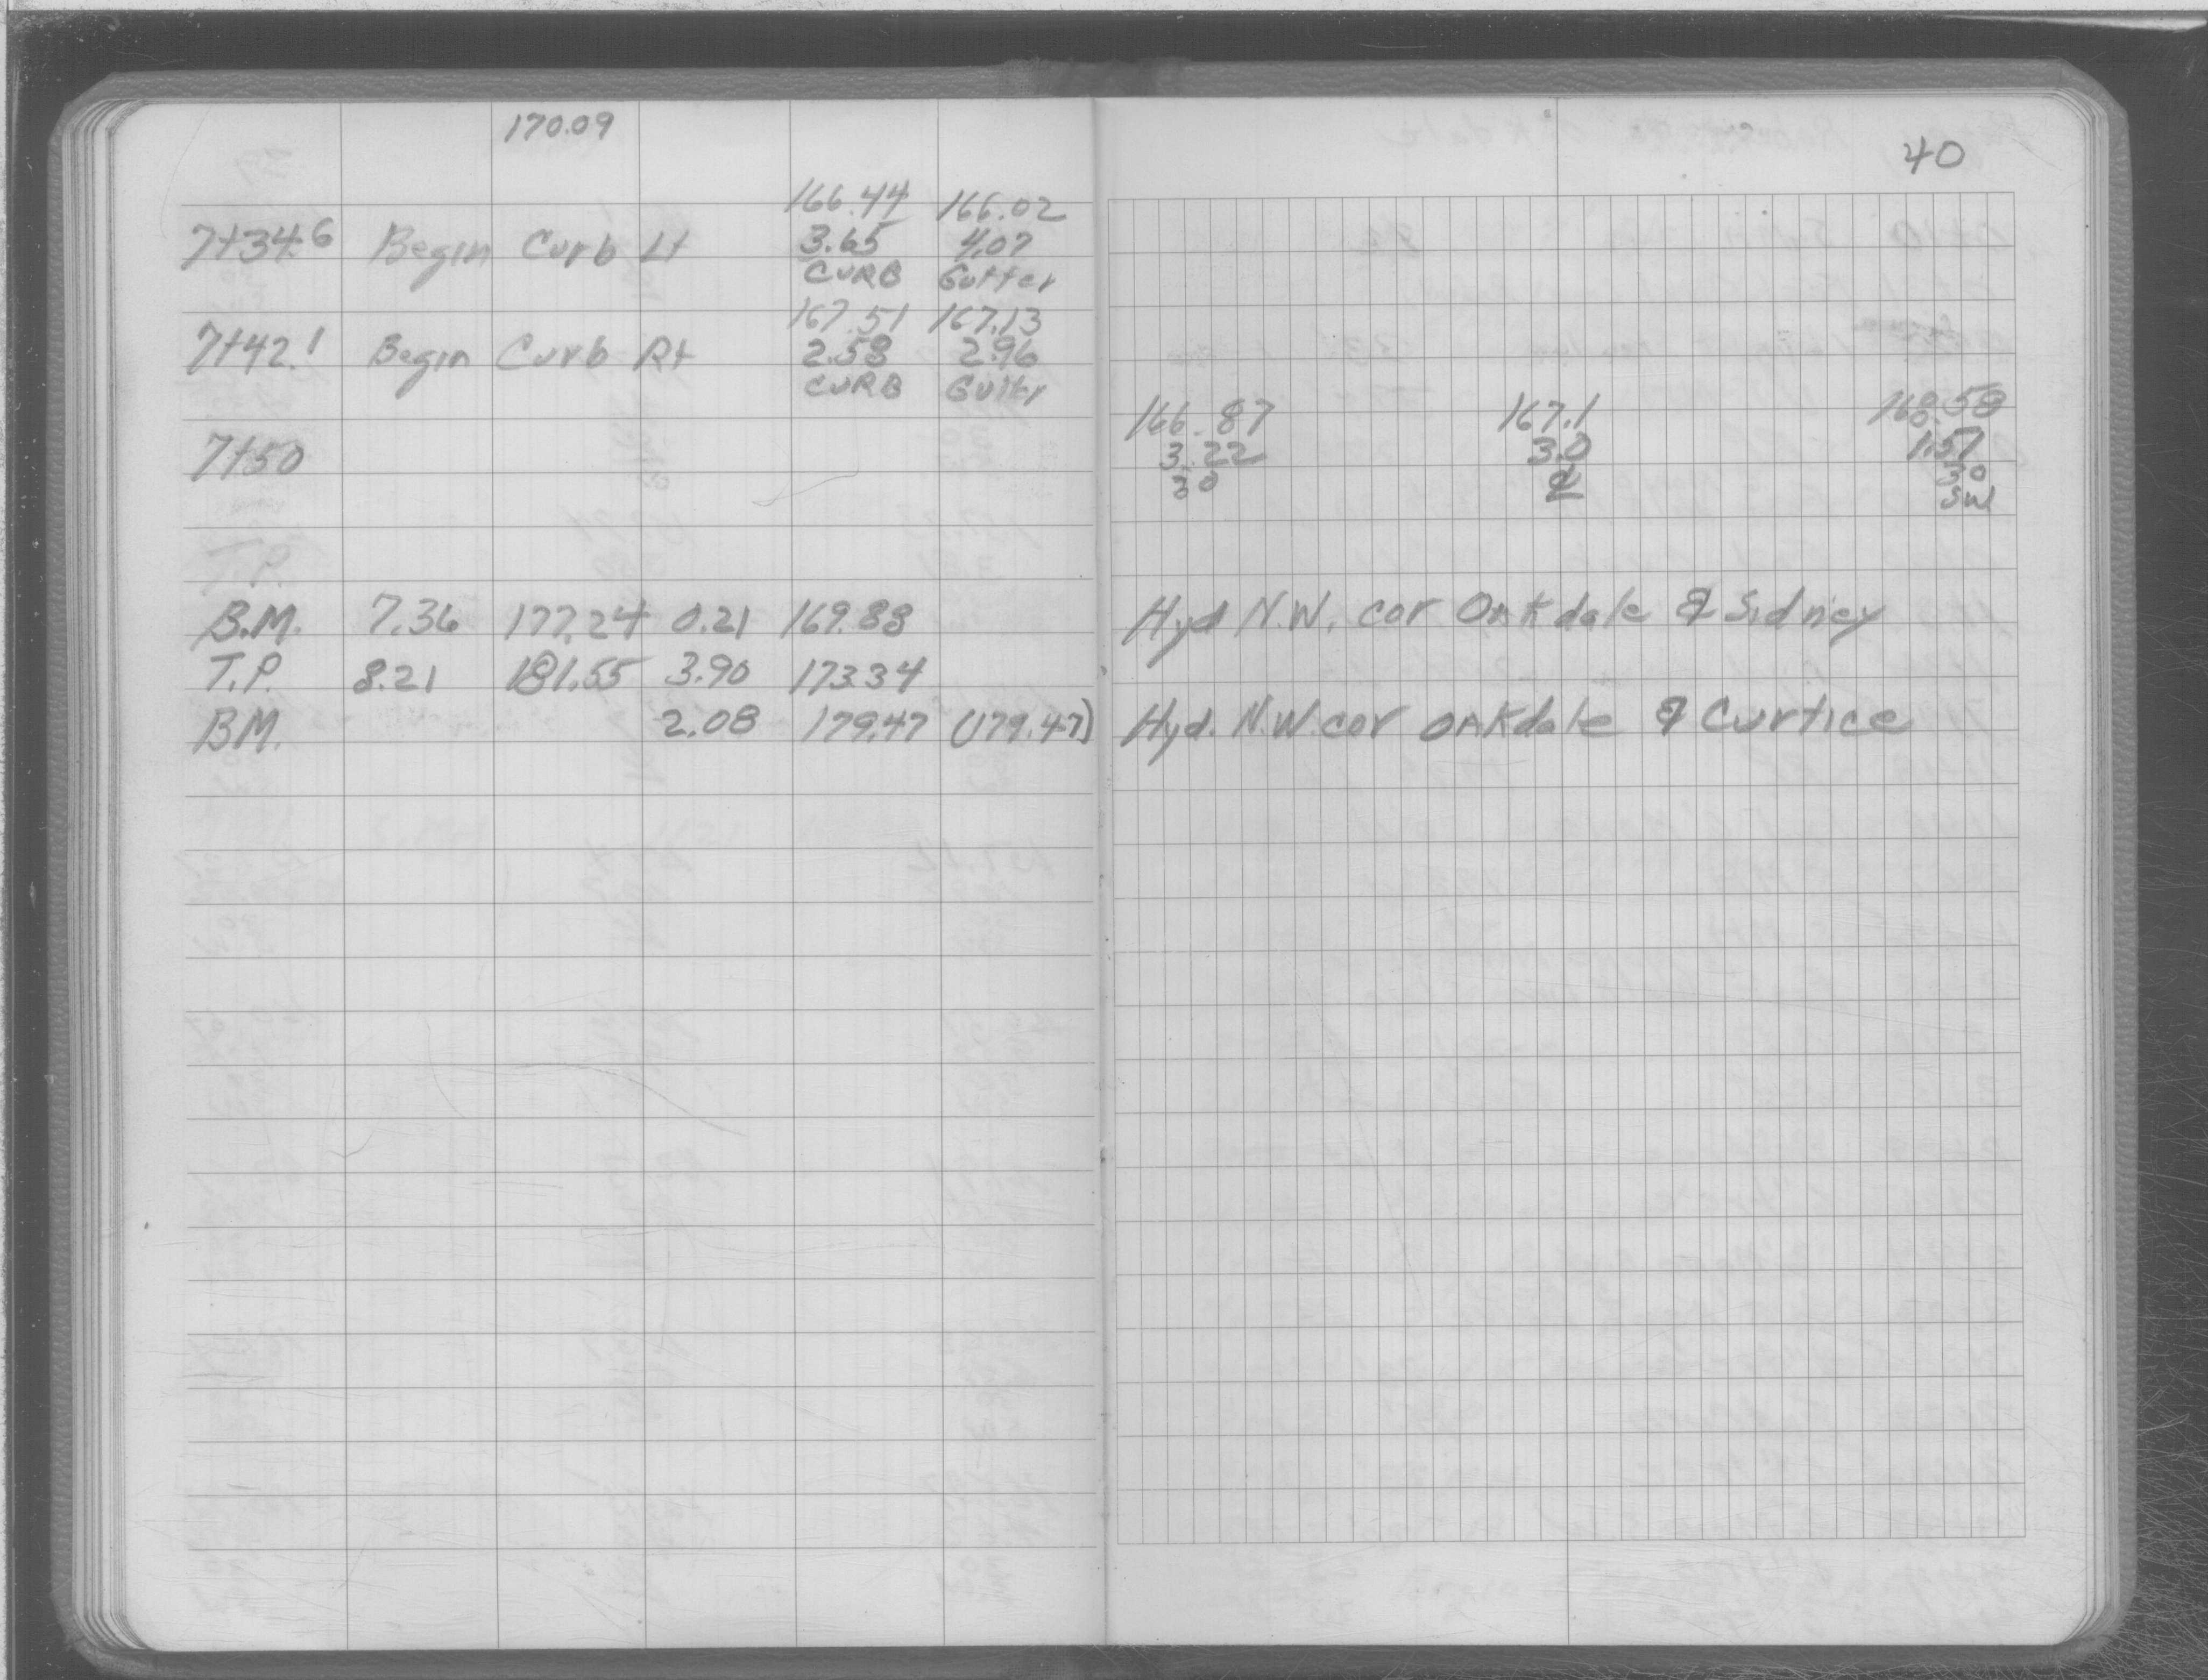 170.09
40
166.44 166.02
7+34.6 Begin Curb Lt 3.65 4.07
CURB Gutter
167.51 167.13
7+42.1 Begin Curb Rt 2.58 2.96
CURB Gutter
166.87 167.1 168.58
7+50 3.22 3.0 1.51
30 ℄ 30
SW
T.P.
B.M. 7.36 177.24 0.21 169.88 Hyd N.W. cor Oakdale & Sidney
T.P. 8.21 181.55 3.90 173.34
BM. 2.08 179.47 (179.47) Hyd. N.W. cor Oakdale & Curtice